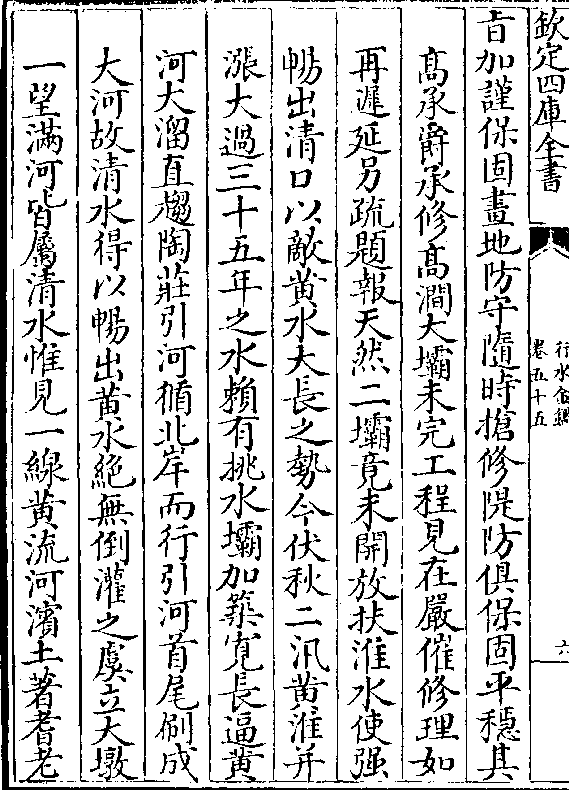 欽定四庫全書
行水金鑑
卷五十五
六
旨加謹保固畫地防守隨時搶修隄防俱保固平穩其
髙承爵承修髙澗大壩未完工程見在嚴催修理如
再遲延另疏題報天然二壩竟未開放扶淮水使强
暢出清口以敵黄水大長之勢今伏秋二汛黄淮并
漲大過三十五年之水賴有挑水壩加築寛長逼黄
河大溜直趨陶莊引河循北岸而行引河首尾刷成
大河故清水得以暢出黄水絶無倒灌之虞立大墩
一望滿河皆屬清水惟見一線黄流河濱土著耆老